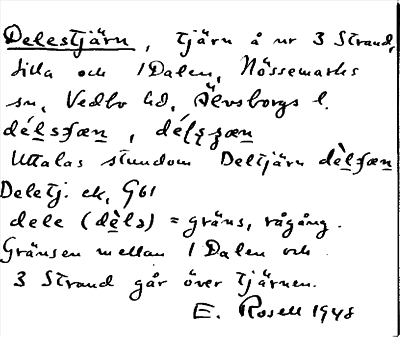 Delestjärn, tjärn å nr 3 Strand,
Lilla och 1 Dalen, Nössemarks
sn, Vedbo hd, Älvsborgs l.
déḷsʃæn,
Uttalas stundom Deltjärn dèlʃæn
Deletj. ek, G61
dele (dèls) = gräns, rågång.
Gränsen mellan 1 Dalen och
3 Strand går över tjärnen.
E. Rosell 1948